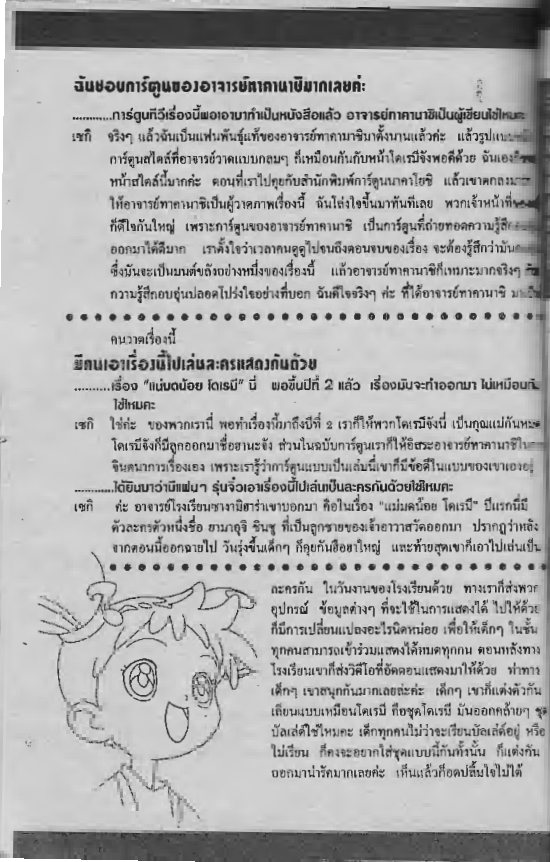 ฉันชอบการ์ตูนของอาจารย์ทาคานาชิมากเลยค่ะ
............การ์ตูนทีวีเรื่องนี้พอเอามาทำเป็นหนังสือแล้ว อาจารย์ทาคานาชิเป็นผู้เขียนใช่ไหมคะ
เซกิ จริงๆ แล้วฉันเป็นแฟนพันธุ์แท้ของอาจารย์ทาคานาชิมาตั้งนานแล้วค่ะ แล้วรูปแบบ
การ์ตูนสไตล์ที่อาจารย์วาดแบบกลมๆ ก็เหมือนกันกับหน้าโดเรมีจังพอดีด้วย ฉันเอง
หน้าสไตล์นี้มากค่ะ ตอนที่เราไปคุยกับสำนักพิมพ์การ์ตูนนาคาโยชิ แล้วเขาตกลง
ให้อาจารย์ทาคานาชิเป็นผู้วาดภาพเรื่องนี้ ฉันโล่งใจขึ้นมาทันทีเลย พวกเจ้าหน้าที่
ก็ดีใจกันใหญ่ เพราะการ์ตูนของอาจารย์ทาคานาชิ เป็นการ์ตูนที่ถ่ายทอดความรู้สึก
ออกมาได้ดีมาก เราตั้งใจว่าเวลาคนดูดูไปจนถึงตอนจบของเรื่อง จะต้องรู้สึกว่ามัน
ซึ่งมันจะเป็นมนต์ขลังอย่างหนึ่งของเรื่องนี้ แล้วอาจารย์ทาคานาชิก็เหมาะมากจริงๆ
ความรู้สึกอบอุ่นปลอดโปร่งใจอย่างที่บอก ฉันดีใจจริงๆ ค่ะ ที่ได้อาจารย์ทาคานาชิ
คนวาดเรื่องนี้
มีคนเอาเรื่องนี้ไปเล่นละครแสดงกันด้วย
..........เรื่อง "แม่มดน้อย โดเรมี" นี่ พอขึ้นปีที่ 2 แล้ว เรื่องมันจะทำออกมา ไม่เหมือนกัน
ใช่ไหมคะ
เซกิ ใช่ค่ะ ของพวกเรานี่ พอทำเรื่องนี้มาถึงปีที่ 2 เราก็ให้พวกโดเรมีจังนี่ เป็นคุณแม่กันหมด
โดเรมีจังก็มีลูกออกมาชื่อฮานะจัง ส่วนในฉบับการ์ตูนเราก็ให้อิสระอาจารย์ทาคานาชิใน
จินตนาการเรื่องเอง เพราะเรารู้ว่าการ์ตูนแบบเป็นเล่มนี่เขาก็มีข้อดีในแบบของเขาเองอยู่
..........ได้ยินมาว่ามีแฟนๆ รุ่นจิ๋วเอาเรื่องนี้ไปเล่นเป็นละครกันด้วยใช่ไหมคะ
เซกิ ค่ะ อาจารย์โรงเรียนซางามิฮาร่าเขาบอกมา คือในเรื่อง "แม่มดน้อย โดเรมี" ปีแรกนี่มี
ตัวละครตัวหนึ่งชื่อ ยามาอุจิ ชินชู ที่เป็นลูกชายของเจ้าอาวาสวัดออกมา ปรากฏว่าหลัง
จากตอนนี้ออกฉายไป วันรุ่งขึ้นเด็กๆ ก็คุยกันฮือฮาใหญ่ และท้ายสุดเขาก็เอาไปเล่นเป็น
ละครกัน ในวันงานของโรงเรียนด้วย ทางเราก็ส่งพวก
อุปกรณ์ ข้อมูลต่างๆ ที่จะใช้ในการแสดงได้ ไปให้ด้วย
ก็มีการเปลี่ยนแปลงอะไรนิดหน่อย เพื่อให้เด็กๆ ในชั้น
ทุกคนสามารถเข้าร่วมแสดงได้หมดทุกคน ตอนหลังทาง
โรงเรียนเขาก็ส่งวิดีโอที่อัดตอนแสดงมาให้ด้วย ท่าทาง
เด็กๆ เขาสนุกกันมากเลยล่ะค่ะ เด็กๆ เขาก็แต่งตัวกัน
เลียนแบบเหมือนโดเรมี คือชุดโดเรมี มันออกคล้ายๆ ชุด
บัลเล่ต์ใช่ไหมคะ เด็กทุกคนไม่ว่าจะเรียนบัลเล่ต์อยู่ หรือ
ไม่เรียน ก็คงจะอยากใส่ชุดแบบนี้กันทั้งนั้น ก็แต่งกัน
ออกมาน่ารักมากเลยค่ะ เห็นแล้วก็อดปลื้มใจไม่ได้